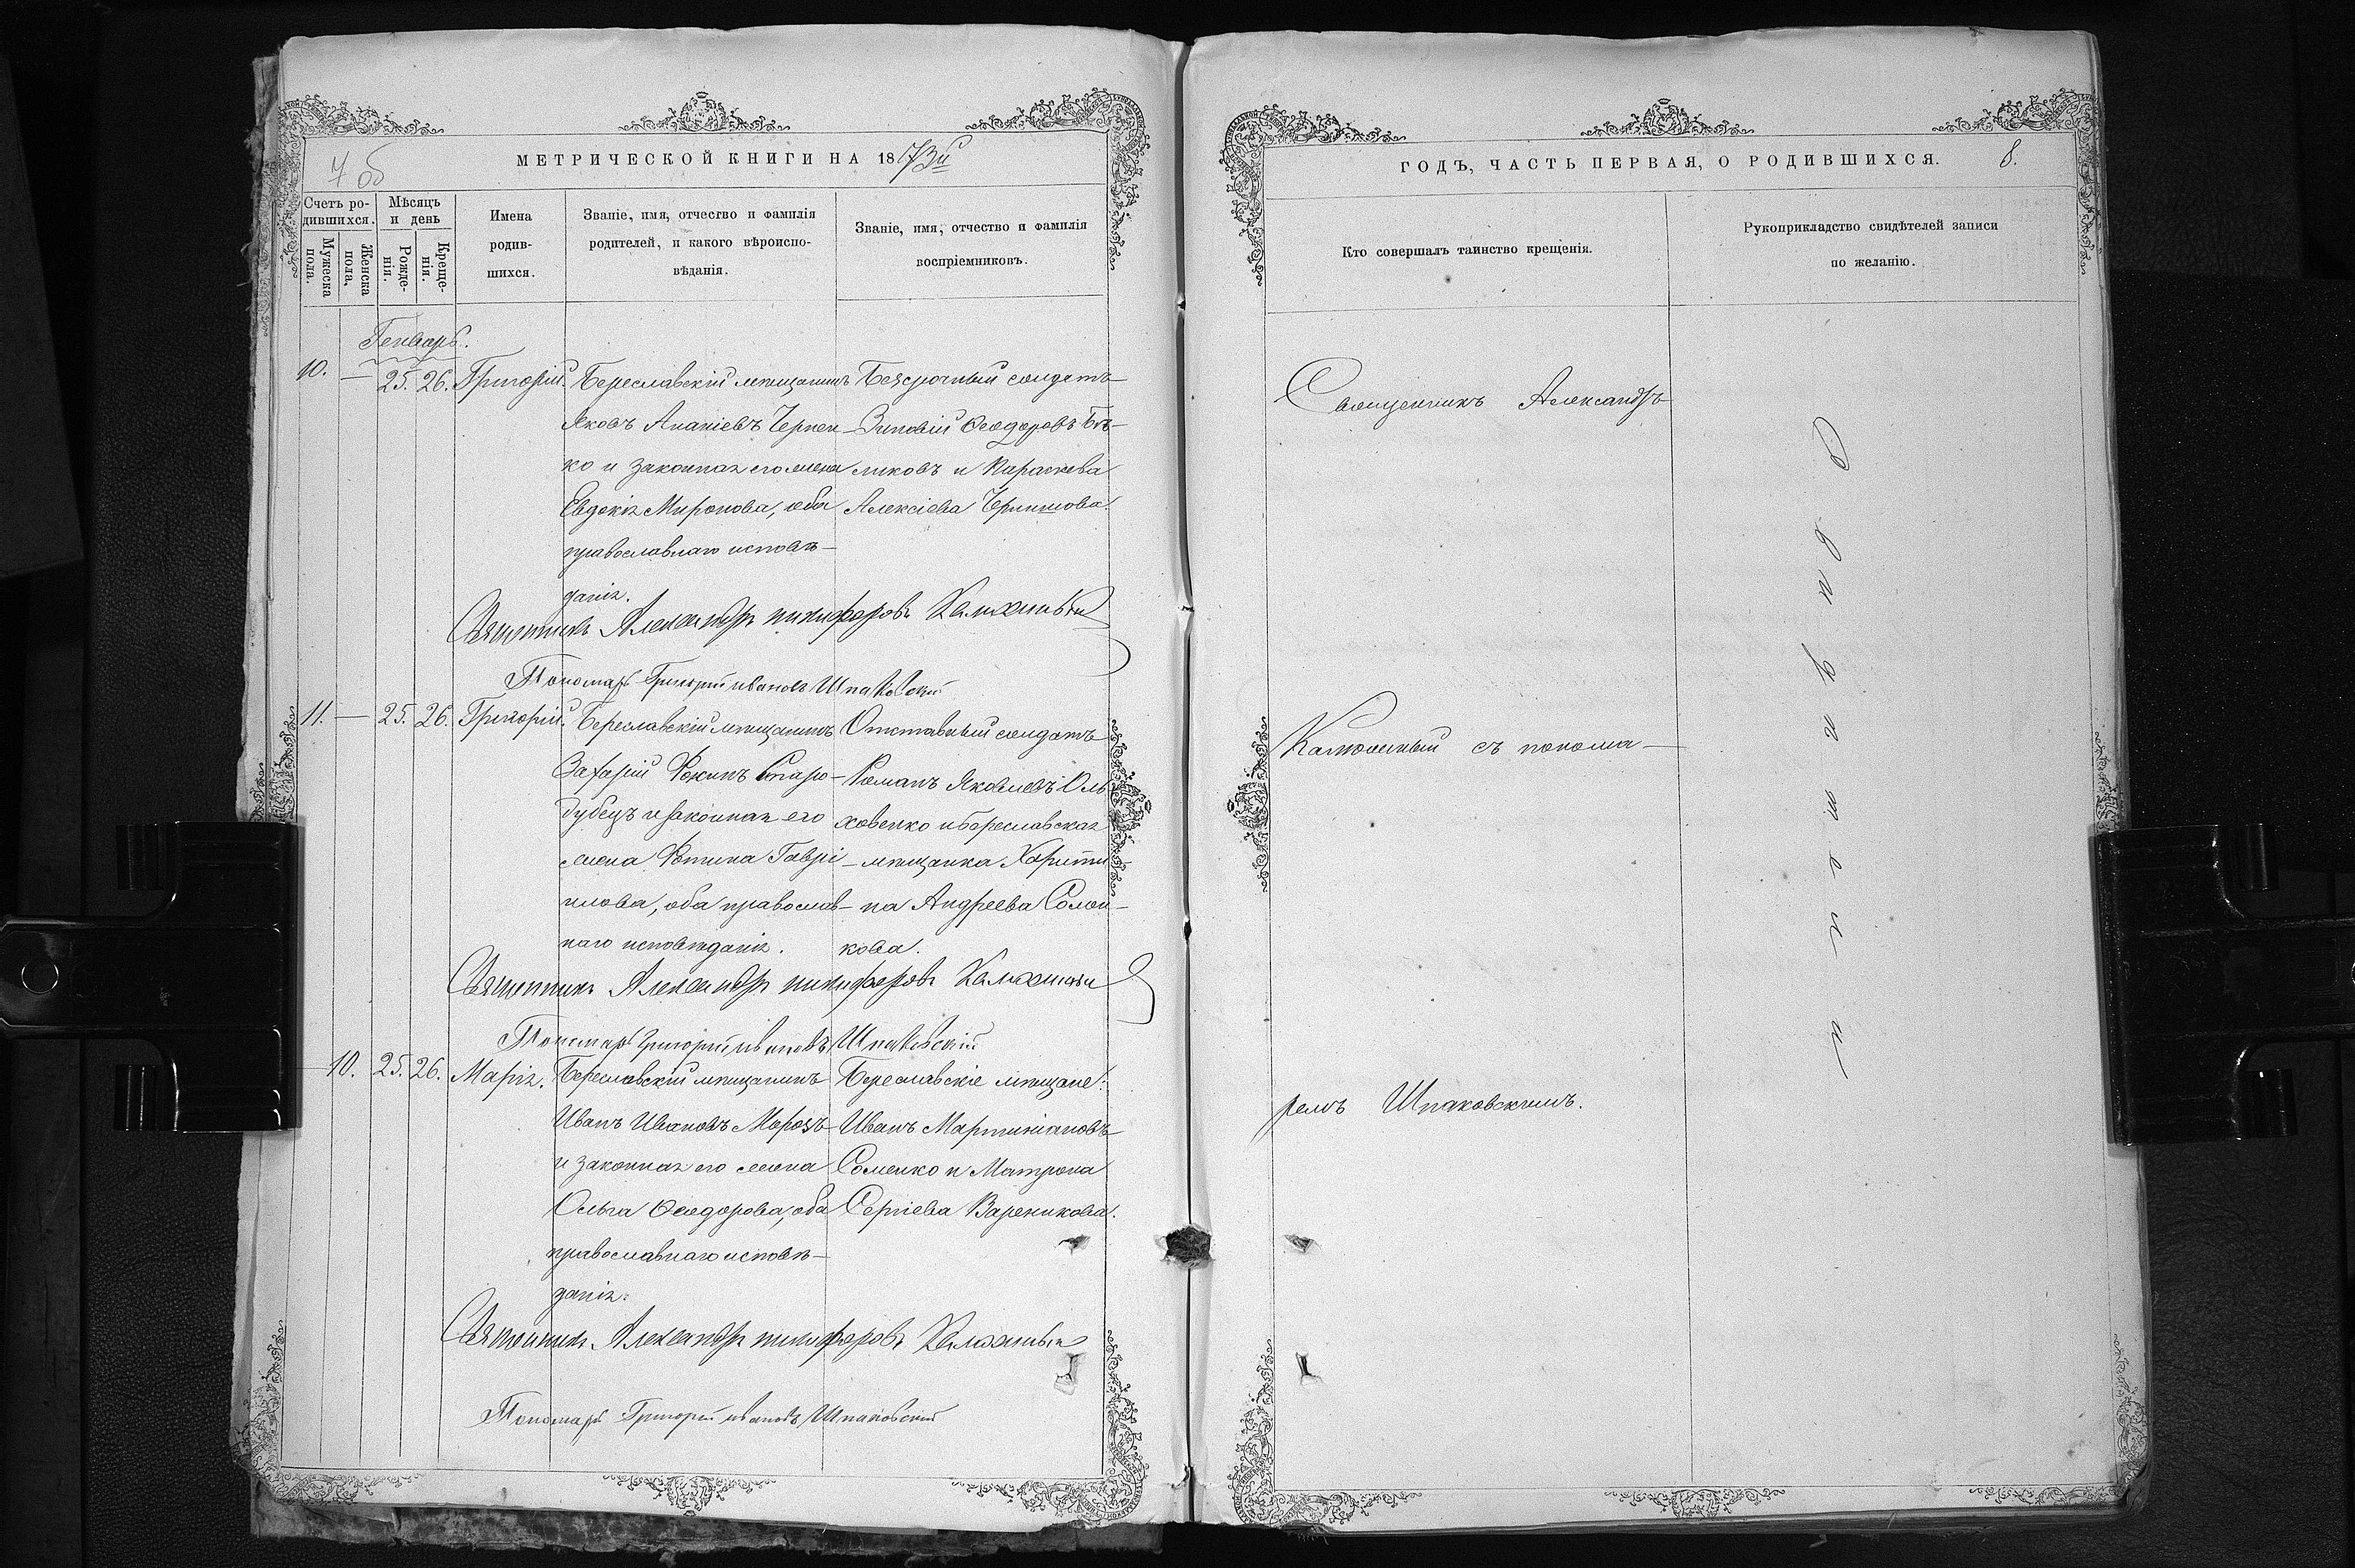 7 об
МЕТРИЧЕСКОЙ КНИГИ НА 1873й
Счетъ ро-
дившихся.
Мужеска
пола.
Женска
пола.
Мѣсяцъ
и день
Рожде-
нія.
Креще-
нія.
Имена
родив-
шихся.
Званіе, имя, отчество и фамилія
родителей, и какого вѣроиспо-
вѣданія.
Званіе, имя, отчество и фамилія
воспріемниковъ.
Генварь.
10. — 25. 26. Григорій.
Береславскій мѣщанинъ
Яковъ Ананіевъ Чернен-
ко и законная его жена
Евдокія Миронова, оба
православнаго исповѣ-
данія.
Безсрочный солдатъ
Зиновій Ѳеодоровъ Бѣ-
ликовъ и Параскева
Алексіева
Священникъ Александръ Никифоровъ
Пономарь Григорій Ивановъ Шпаковскій
11. — 25. 26. Григорій.
Береславскій мѣщанинъ
Захарій Фокинъ Старо-
дубецъ и законная его
жена Фотина Гаврі-
илова, оба православ-
наго исповѣданія.
Отставный солдатъ
Романъ Яковлевъ Оль-
ховенко и береславская
мѣщанка Харити-
на Андреева Солом-
кова.
Священникъ Александръ Никифоровъ
Пономарь Григорій Ивановъ Шпаковскій
— 10. 25. 26. Марія.
Береславскій мѣщанинъ
Иванъ Ивановъ Морозъ
и законная его жена
Ольга Ѳеодорова, оба
православнаго исповѣ-
данія.
Береславскіе мѣщане:
Иванъ Мартиніановъ
Соменко и Матрона
Сергіева Вареникова.
Священникъ Александръ Никифоровъ
Пономарь Григорій Ивановъ Шпаковскій
ГОДЪ, ЧАСТЬ ПЕРВАЯ, О РОДИВШИХСЯ.
8.
Кто совершалъ таинство крещенія.
Рукоприкладство свидѣтелей записи
по желанію.
Священникъ Александръ
съ понома-
ремъ Шпаковскимъ.